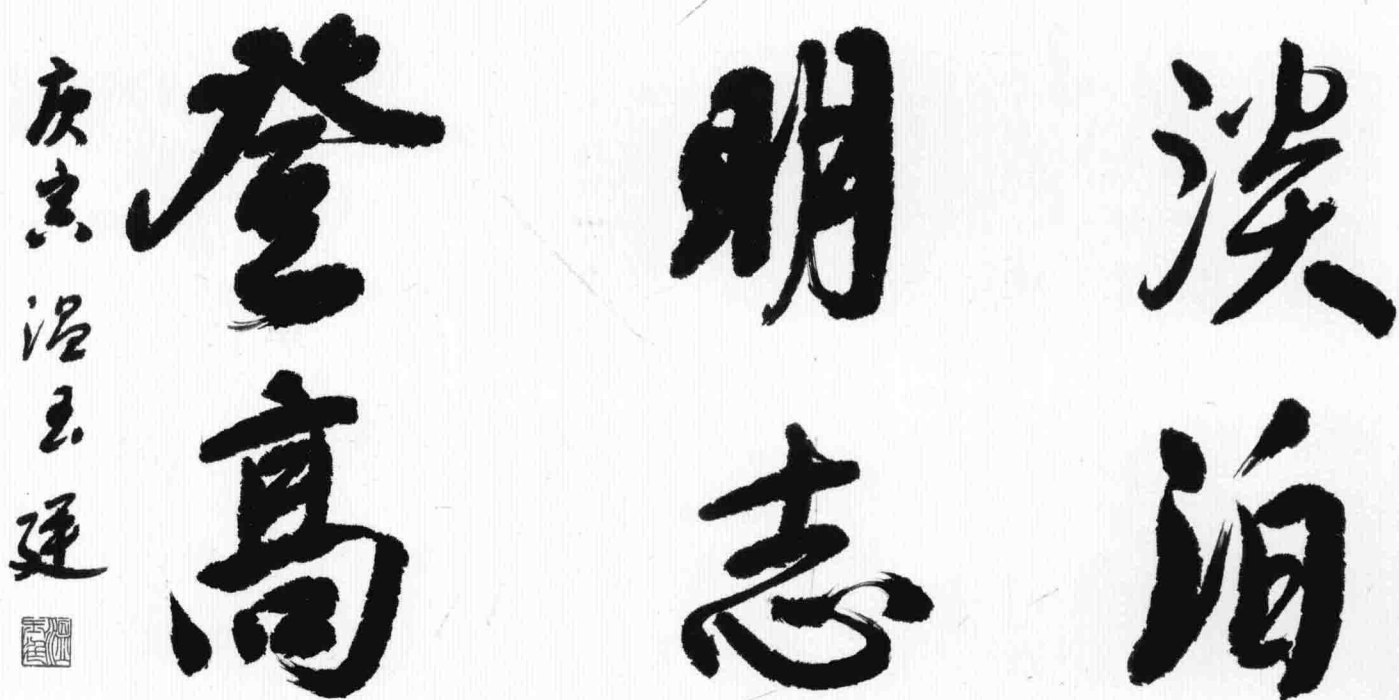 淡泊
明志
登高
庚寅温玉建